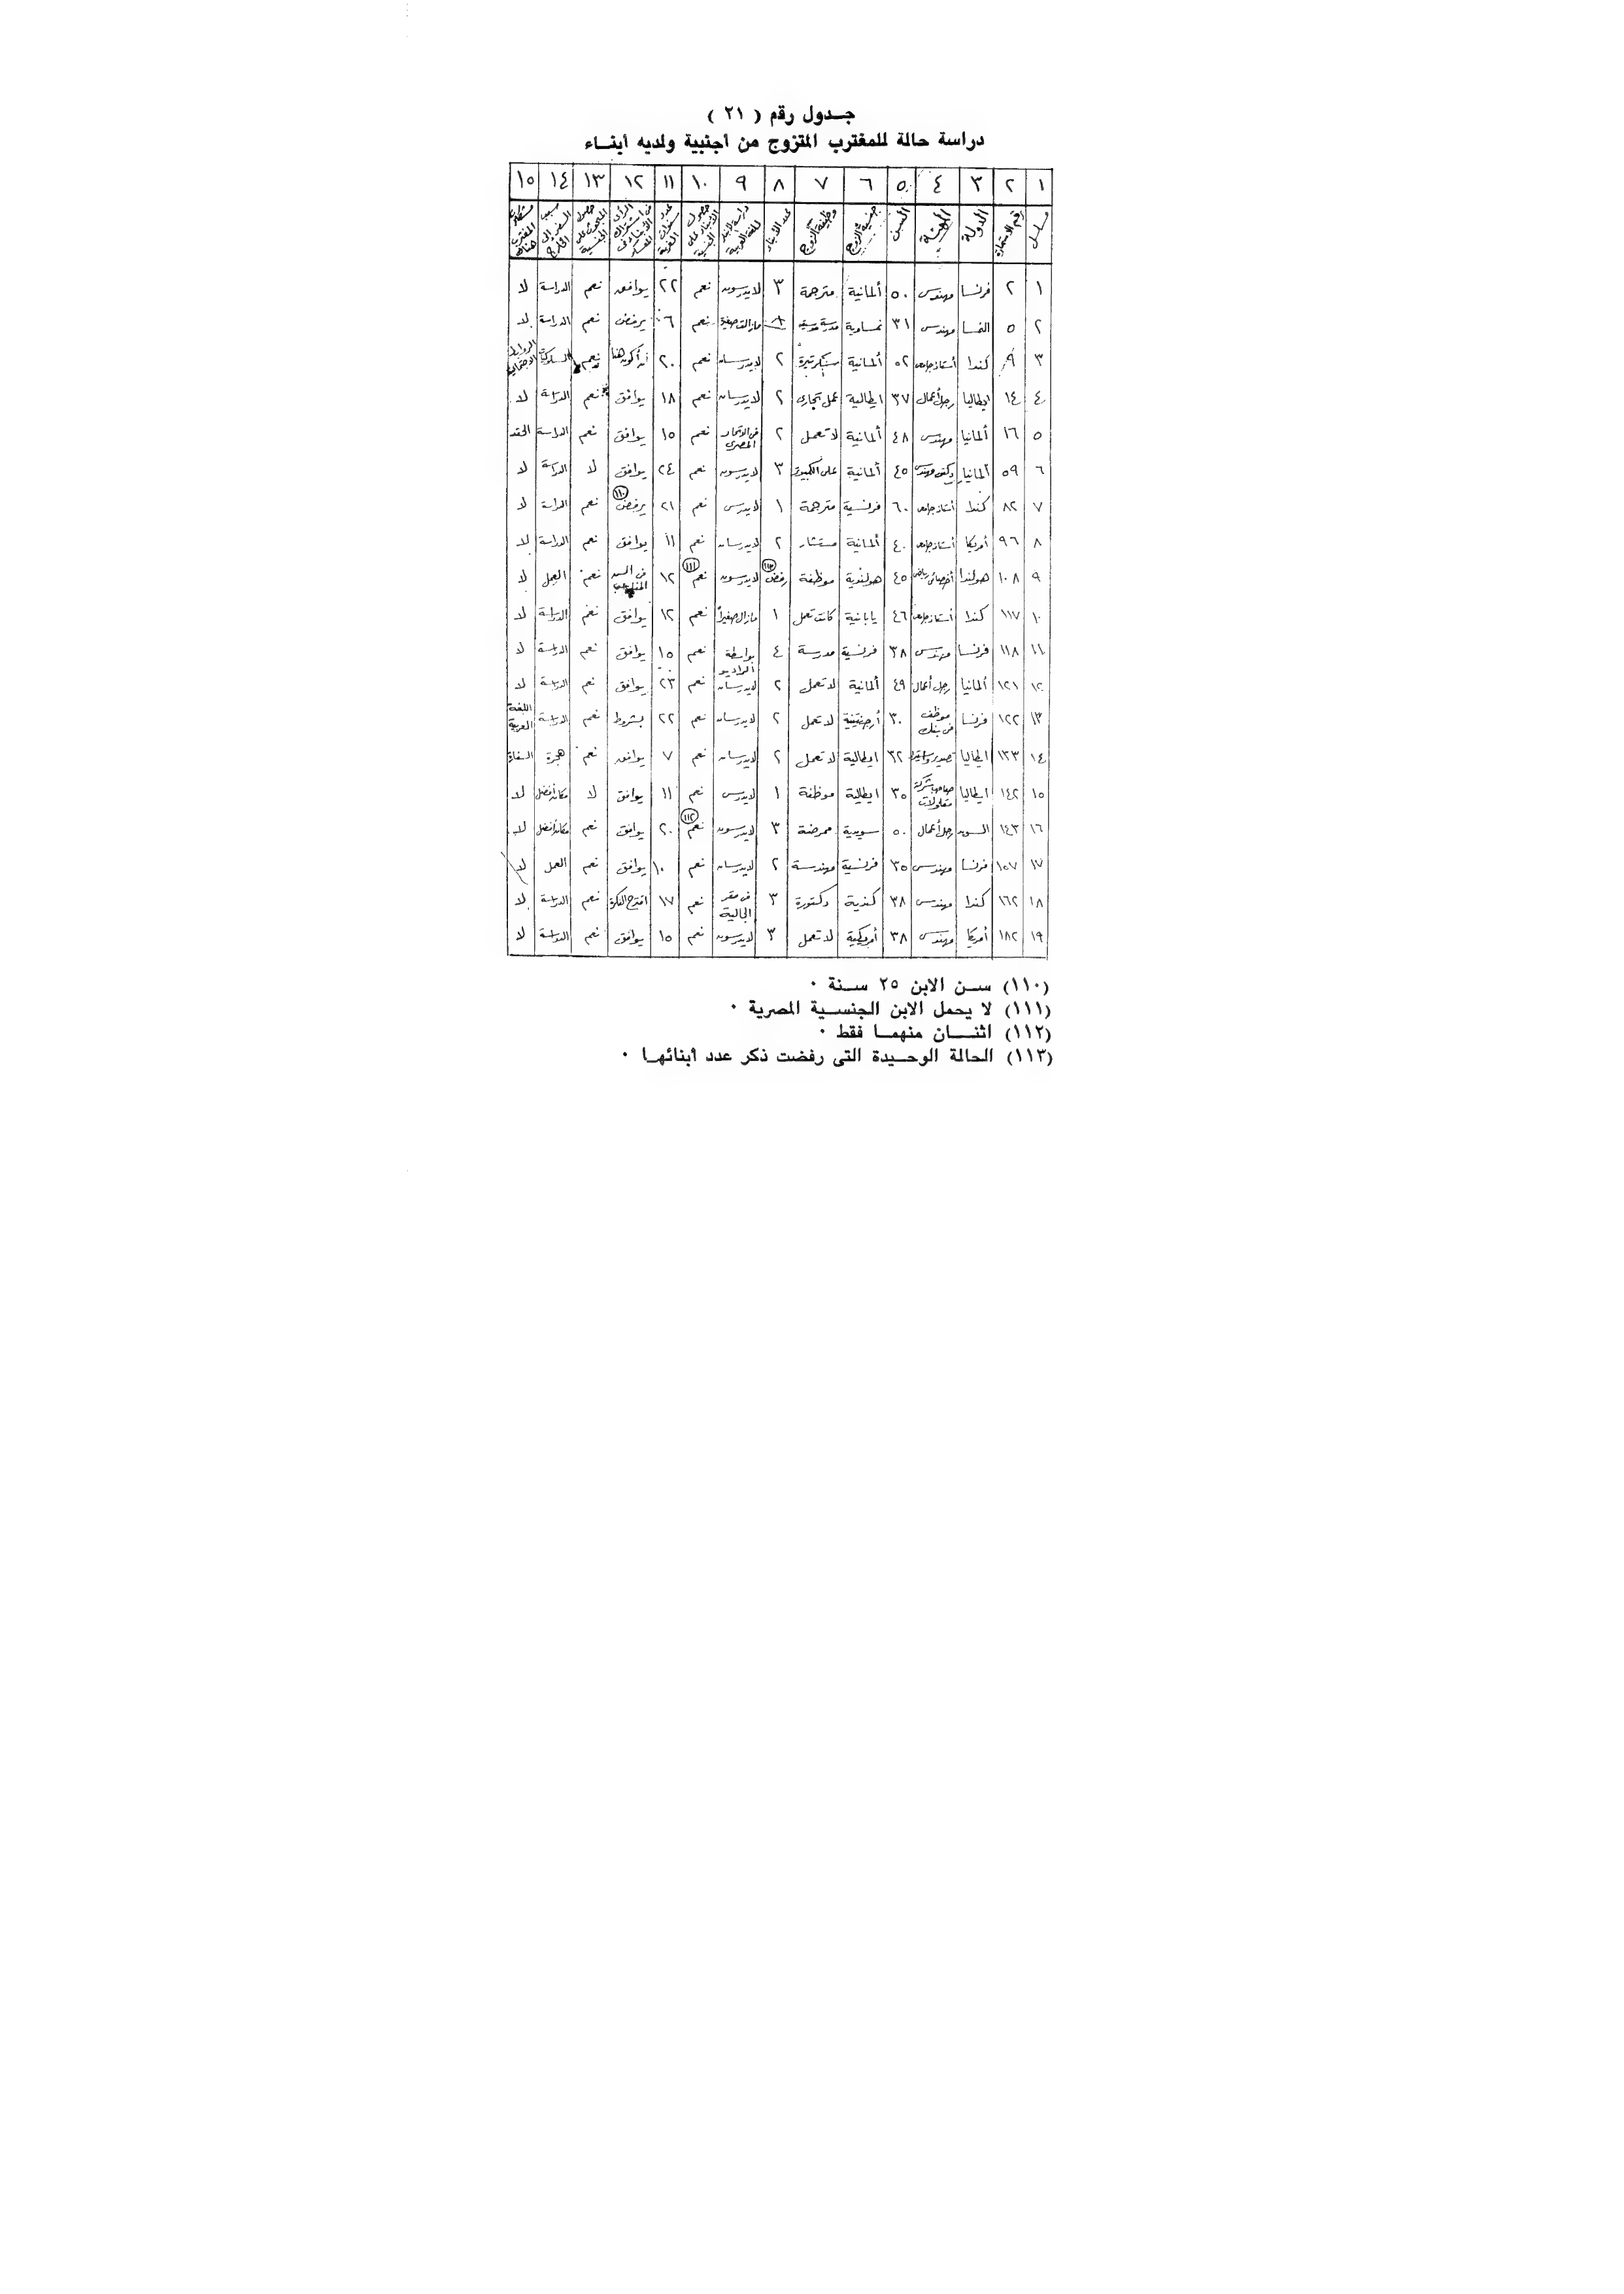 جـدول رقم ( ٢١ )
دراسة حالة للمغترب المتزوج من أجنبية ولديه أبنـاء
١ ٢ ٣ ٤ ٥ ٦ ٧ ٨ ٩ ١٠ ١١ ١٢ ١٣ ١٤ ١٥
مسلسل رقم الاستمارة الدولة المهنة السن جنسية الزوج وظيفة الزوج عدد الأبناء
١ ٢ فرنسا مهندس ٥٠ ألمانية مترجمة ٣ لايدرسون نعم ٢٢ يوافق نعم الدراسة لا
٢ ٥ النمسا مهندس ٣١ نمساوية مدرسة نعم ٦ يرفض نعم الدراسة لا
٣ ٩ كندا أستاذ جامعه ٥٢ ألمانية سكرتيرة ٢ لايدرسان نعم ٢٠ نعم
٤ ١٤ ايطاليا رجل أعمال ٣٧ ايطالية عمل تجارى ٢ لايدرسان نعم ١٨ يوافق نعم الدراسة لا
٥ ١٦ ألمانيا مهندس ٤٨ ألمانية لاتعمل ٢ فى الاتحاد المصرى نعم ١٥ يوافق نعم الدراسة
٦ ٥٩ ألمانيا ٤٥ ألمانية ٣ لايدرسون نعم ٢٤ يوافق لا الدراسة لا
٧ ٨٢ كندا أستاذ جامعه ٦٠ فرنسية مترجمة ١ لايدرس نعم ٢١ يرفض (١١٠) نعم الدراسة لا
٨ ٩٦ أمريكا أستاذ جامعه ٤٠ ألمانية مستشار ٢ لايدرسان نعم ١١ يوافق نعم الدراسة لا
٩ ١٠٨ هولندا ٤٥ هولندية موظفة رفض (١١٣) لايدرسون نعم (١١١) ١٢ نعم العمل لا
١٠ ١١٧ كندا أستاذ جامعه ٤٦ يابانية كانت تعمل ١ مازال صغيراً نعم ١٢ يوافق نعم الدراسة لا
١١ ١١٨ فرنسا مهندس ٣٨ فرنسية مدرسة ٤ بواسطة الراديو نعم ١٥ يوافق نعم الدراسة لا
١٢ ١٢١ ألمانيا رجل أعمال ٤٩ ألمانية لاتعمل ٢ لايدرسان نعم ٢٣ يوافق نعم الدراسة لا
١٣ ١٢٢ فرنسا موظف فى بنك ٣٠ أرجنتينية لاتعمل ٢ لايدرسان نعم ٢٢ بشروط نعم الدراسة اللغة العربية
١٤ ١٣٣ ايطاليا ٣٢ ايطالية لاتعمل ٢ لايدرسان نعم ٧ يوافق نعم هجرة السفارة
١٥ ١٤٢ ايطاليا ٣٥ ايطالية موظفة ١ لايدرس نعم ١١ يوافق لا مكان أفضل لا
١٦ ١٤٣ السويد رجل أعمال ٥٠ ممرضة ٣ لايدرسون نعم (١١٢) ٢٠ يوافق نعم مكان أفضل لا
١٧ ١٥٧ فرنسا مهندس ٣٥ فرنسية مهندسة ٢ لايدرسان نعم ١٠ يوافق نعم العمل لا
١٨ ١٦٢ كندا مهندس ٣٨ كندية دكتورة ٣ فى مقر الجالية نعم ١٧ اقترح الفكرة نعم الدراسة لا
١٩ ١٨٢ أمريكا مهندس ٣٨ أمريكية لاتعمل ٣ لايدرسون نعم ١٥ يوافق نعم الدراسة لا
(١١٠) ســن الابن ٢٥ سـنة ٠
(١١١) لا يحمل الابن الجنســية المصرية ٠
(١١٢) اثنـــان منهمــا فقط ٠
(١١٣) الحالة الوحـيدة التى رفضت ذكر عدد أبنائهـا ٠